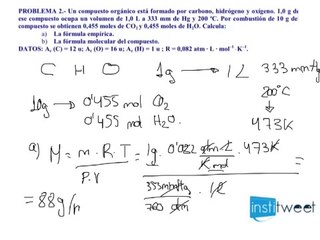 PROBLEMA 2.- Un compuesto orgánico está formado por carbono, hidrógeno y oxígeno. 1,0 g de
ese compuesto ocupa un volumen de 1,0 L a 333 mm de Hg y 200 ºC. Por combustión de 10 g de
compuesto se obtienen 0,455 moles de CO2 y 0,455 moles de H2O. Calcula:
a) La fórmula empírica.
b) La fórmula molecular del compuesto.
DATOS: Ar (C) = 12 u; Ar (O) = 16 u; Ar (H) = 1 u; R = 0,082 atm · L · mol-1 ·K-1.
C H O 1g → 1L 333 mmHg
200ºC
10g → 0'455 mol CO2
0'455 mol H2O.
473K
a) M = m.R.T / P.V = 1g. 0'082 atm.L / K.mol . 473K / 333mmHg / 760 atm . 1L =
= 88g/m
instiTweet